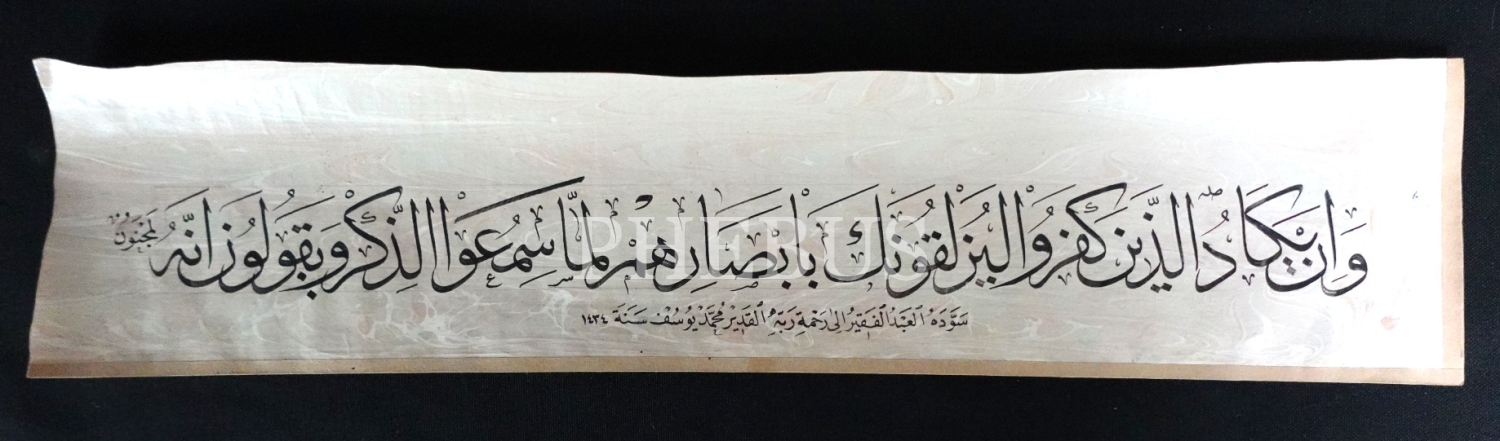 وَاِنْ يَكَادُ الَّذينَ كَفَرُوا لَيُزْلِقُونَكَ بِاَبْصَارِهِمْ لَمَّا سَمِعُوا الذِّكْرَ وَيَقُولُونَ اِنَّهُ لَمَجْنُونٌ
PHEBUS
سَوَّدَهُ الْعَبْدُ الْفَقِيرُ اِلَى رَحْمَةِ رَبِّهِ الْقَدِيرِ مُحَمَّدْ يُوسُفْ سَنَةَ ١٤٣٤